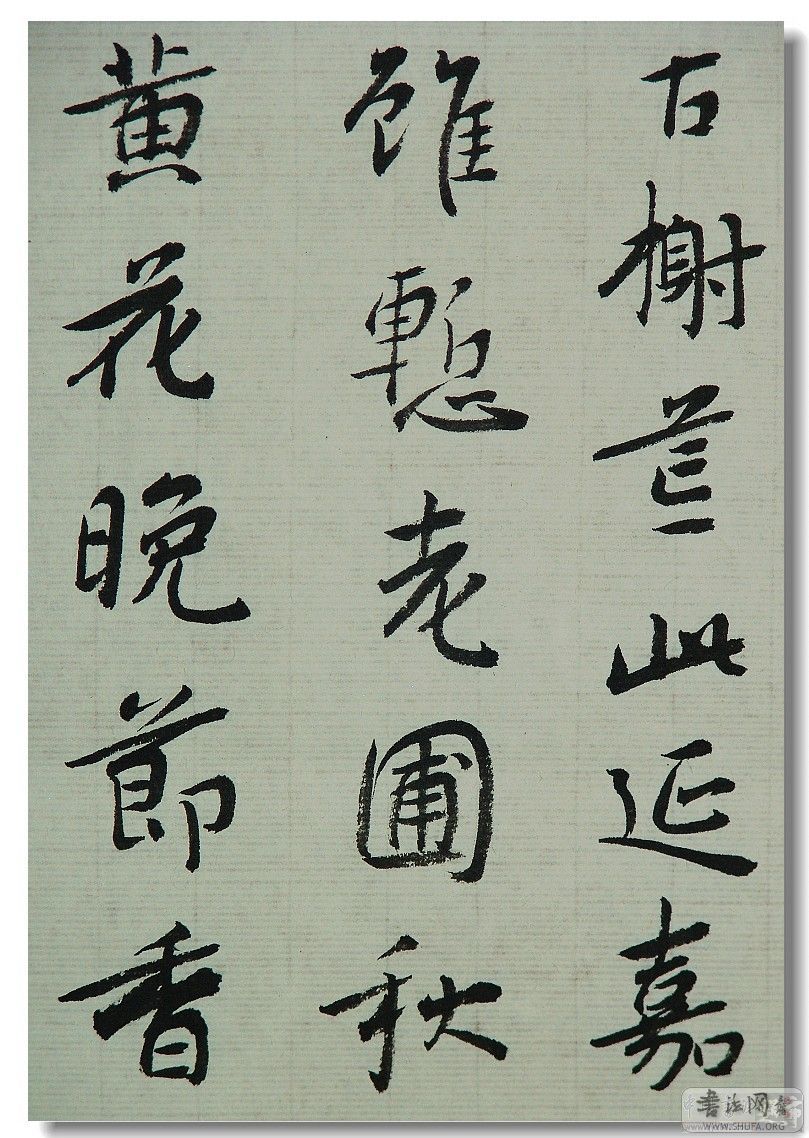 古榭荒此延嘉
雖慙老圃秋
黄花晚節香
书法网
WWW.SHUFA.ORG